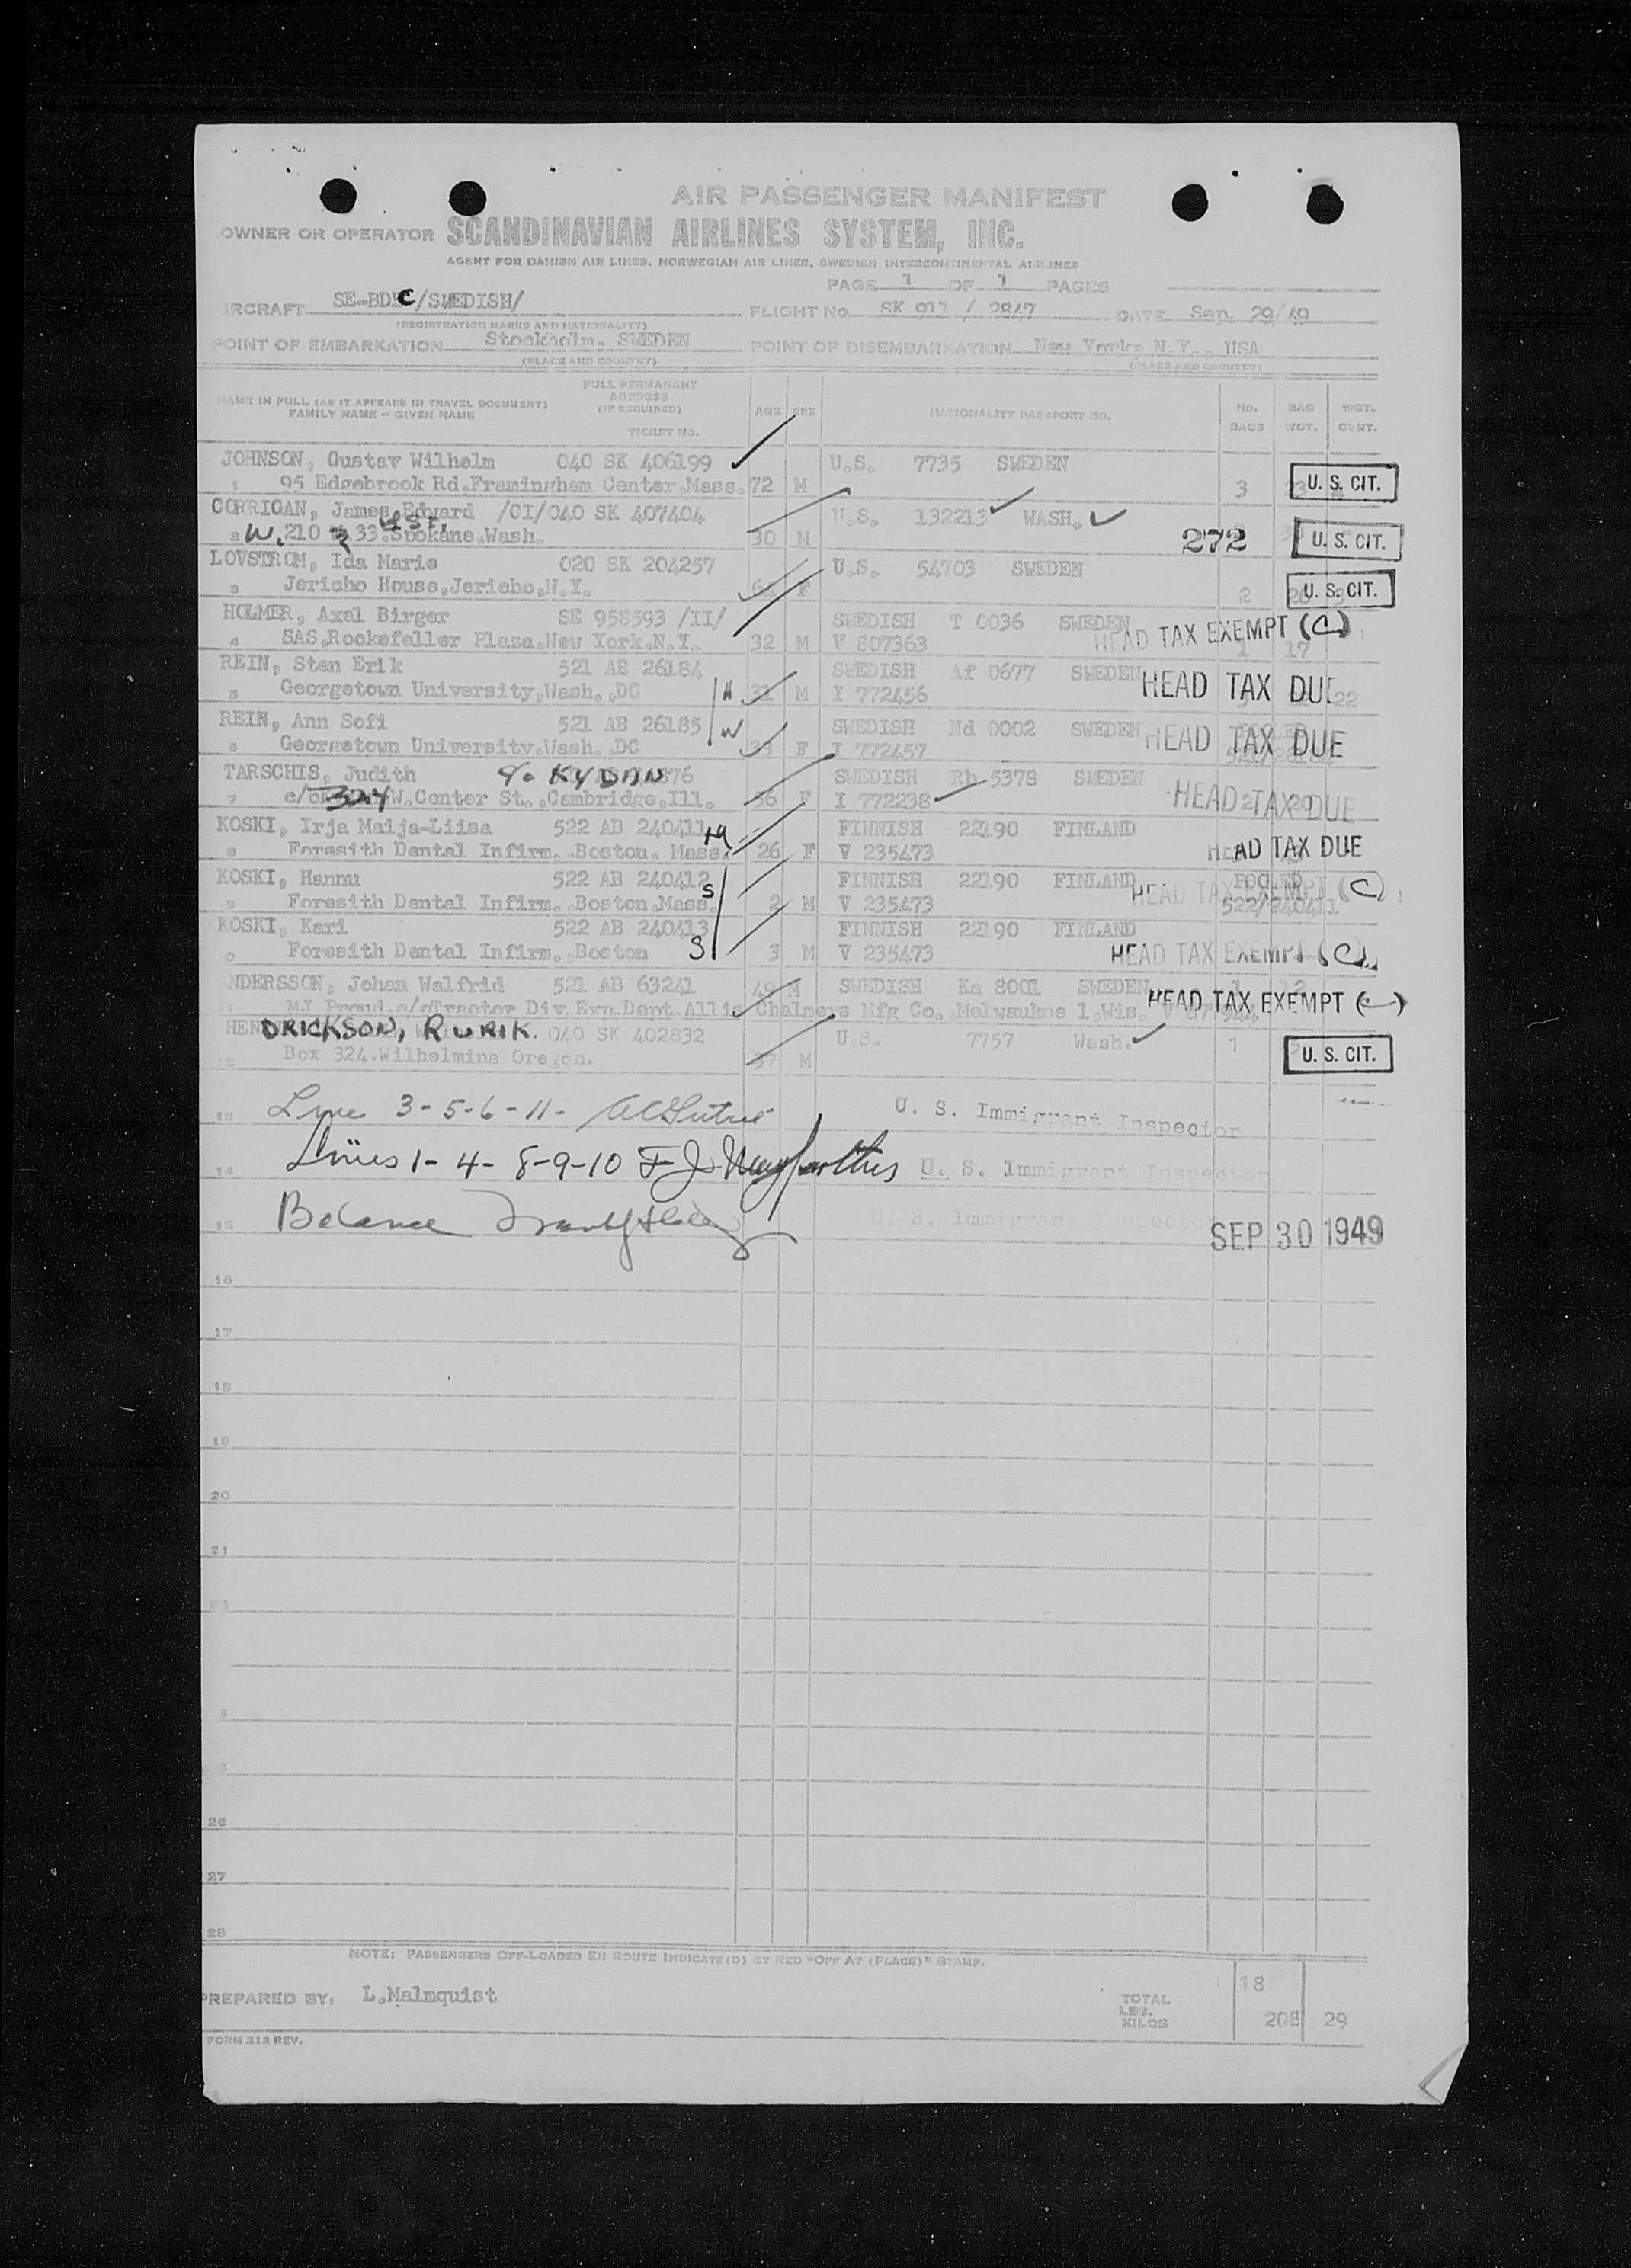 AIR PASSENGER MANIFEST
OWNER OR OPERATOR SCANDINAVIAN AIRLINES SYSTEM, INC.
AGENT FOR DANISH AIR LINES, NORWEGIAN AIR LINES, SWEDISH INTERCONTINENTAL AIRLINES
PAGE 1 OF 1 PAGES
IRCRAFT SE-BD C/SWEDISH/ FLIGHT NO. SK 911 / 2847 DATE Sep. 29/49
(REGISTRATION MARKS AND NATIONALITY)
POINT OF EMBARKATION Stockholm. SWEDEN POINT OF DISEMBARKATION New York, N.Y., USA
(PLACE AND COUNTRY) (PLACE AND COUNTRY)
NAME IN FULL (AS IT APPEARS IN TRAVEL DOCUMENT) FAMILY NAME -- GIVEN NAME FULL PERMANENT ADDRESS (IF REQUIRED) TICKET NO. AGE SEX NATIONALITY PASSPORT NO. NO. BAGS BAG WGT. WGT. OVWT.
JOHNSON, Gustav Wilhelm 040 SK 406199 U.S. 7735 SWEDEN
1 95 Edgebrook Rd.Framingham Center.Mass. 72 M 3 23 U. S. CIT.
CORRIGAN, James Edward /CI/040 SK 407404 U.S. 132213 WASH.
2 W. 210 33 Spokane.Wash. 30 M 272 U. S. CIT.
LOVSTROM, Ida Marie 020 SK 204257 U.S. 54703 SWEDEN
3 Jericho House,Jericho,N.Y. F 2 20 U. S. CIT.
HOLMER, Axal Birger SE 958593 /II/ SWEDISH T 0036 SWEDEN HEAD TAX EXEMPT (C)
4 SAS,Rockefeller Plaza,New York.N.Y. 32 M V 807363 1 17
REIN, Sten Erik 521 AB 26184 SWEDISH Af 0677 SWEDEN HEAD TAX DUE
5 Georgetown University,Wash.,DC H 31 M I 772456 22
REIN, Ann Sofi 521 AB 26185 W SWEDISH Nd 0002 SWEDEN HEAD TAX DUE
6 Georgetown University.Wash. DC 33 F I 772457
TARSCHIS, Judith c/o KYDAN 876 SWEDISH Rb 5378 SWEDEN
7 c/o 324 W.Center St.,Cambridge,Ill. 56 F I 772238 2 20 HEAD TAX DUE
KOSKI, Irja Maija-Liisa 522 AB 240411 M FINNISH 22190 FINLAND
8 Foresith Dental Infirm.,Boston. Mass. 26 F V 235473 HEAD TAX DUE
KOSKI, Hannu 522 AB 240412 S FINNISH 22190 FINLAND POOLED HEAD TAX EXEMPT (C)
9 Foresith Dental Infirm.,Boston.Mass. 2 M V 235473 522/240411
KOSKI, Kari 522 AB 240413 S FINNISH 22190 FINLAND
0 Foresith Dental Infirm.,Boston 3 M V 235473 HEAD TAX EXEMPT (C)
NDERSSON, Johan Walfrid 521 AB 63241 49 M SWEDISH Ka 8001 SWEDEN 1 12
11 c/oTractor Div.Exp.Dept Allis Chalmers Mfg Co. Melwaukee 1.Wis. HEAD TAX EXEMPT (C)
HENDRICKSON, RURIK. 040 SK 402832 U.S. 7757 Wash. 1
12 Box 324.Wilhelmina Oregon. 37 M U. S. CIT.
13 Line 3-5-6-11- U. S. Immigrant Inspector
14 Lines 1-4-8-9-10 F J U. S. Immigrant Inspector
15 Balance U. S. Immigrant Inspector SEP 30 1949
16
17
18
19
20
21
26
27
28
NOTE: PASSENGERS OFF-LOADED EN ROUTE INDICATE(D) BY RED "OFF AT (PLACE)" STAMP.
PREPARED BY: L.Malmquist TOTAL LBS. KILOS 18 208 29
FORM 212 REV.